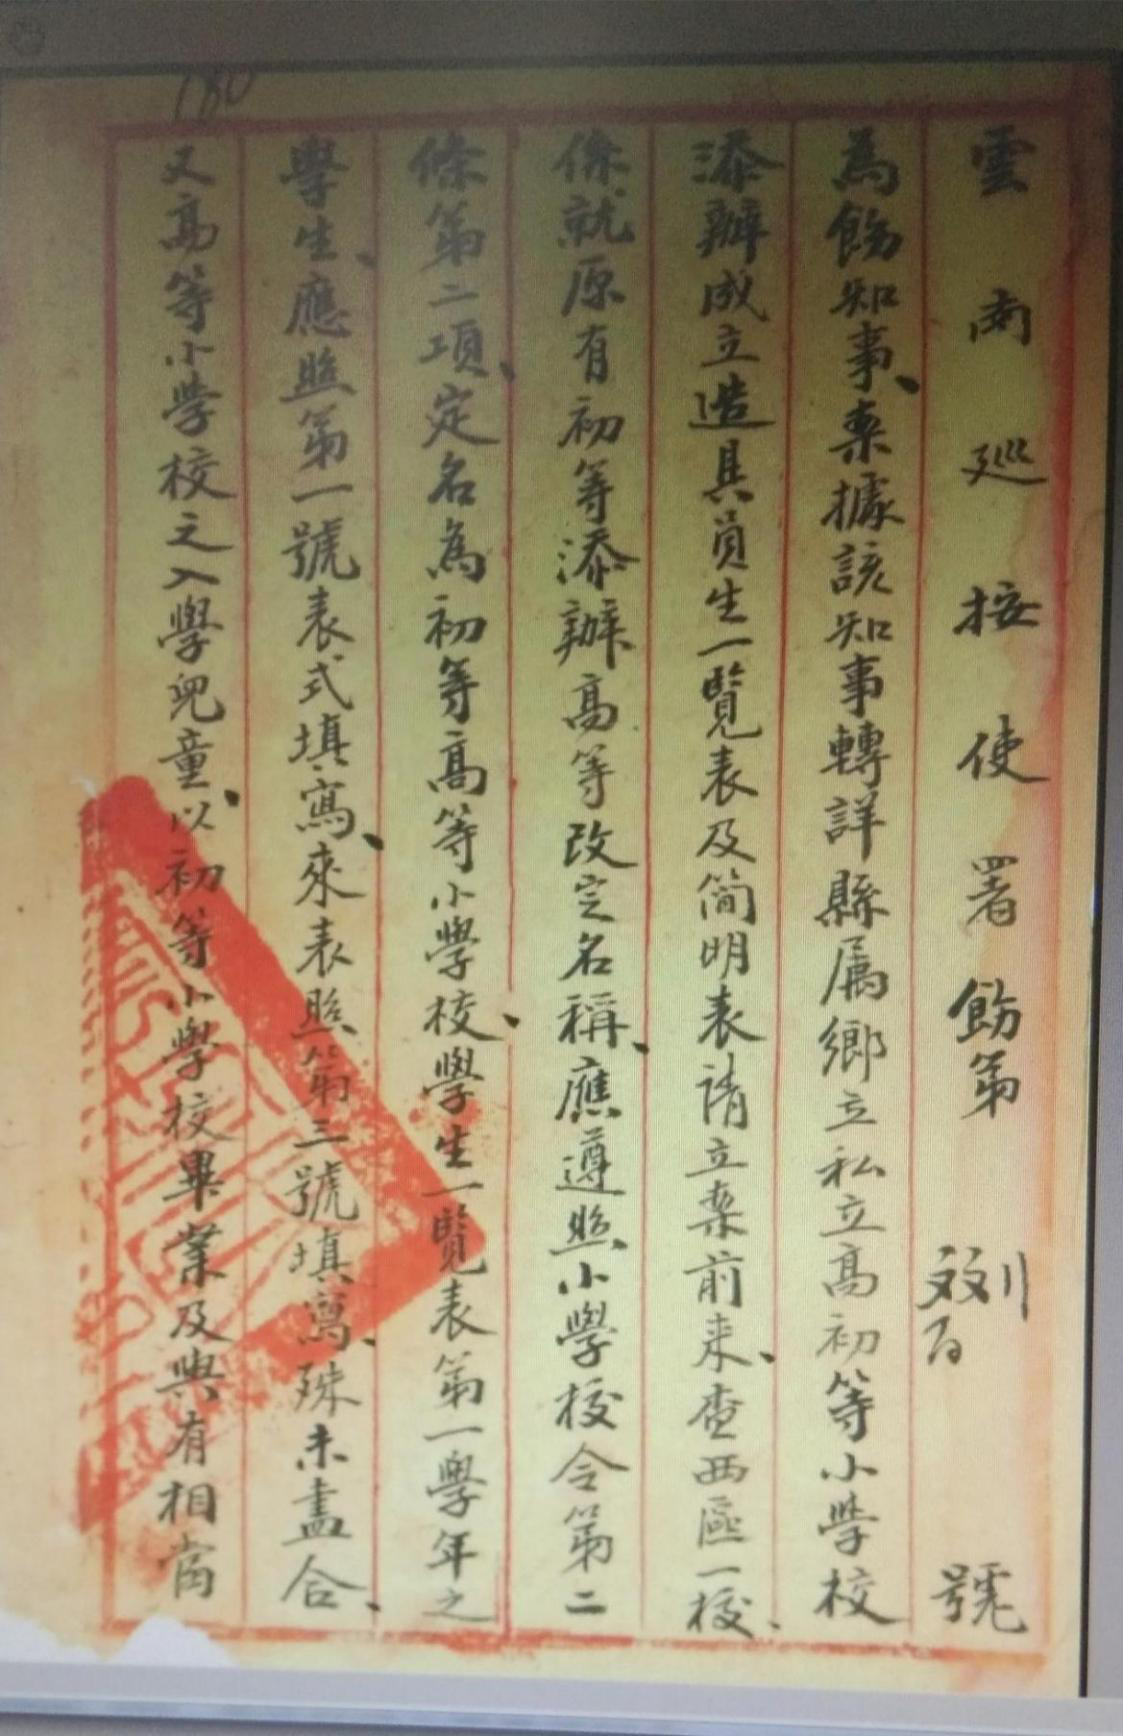 180
雲南巡按使署飭第 號
為飭知事、案據該知事轉詳縣屬鄉立私立高初等小學校
添辦成立造具員生一覽表及简明表請立案前来、查西區一校、
係就原有初等添辦高等改定名稱、應遵照小學校令第二
條第二項、定名為初等高等小學校、學生一覽表第一學年之
學生、應照第一號表式填寫、來表照第三號填寫、殊未盡合、
又高等小學校之入學兒童、以初等小學校畢業及與有相當